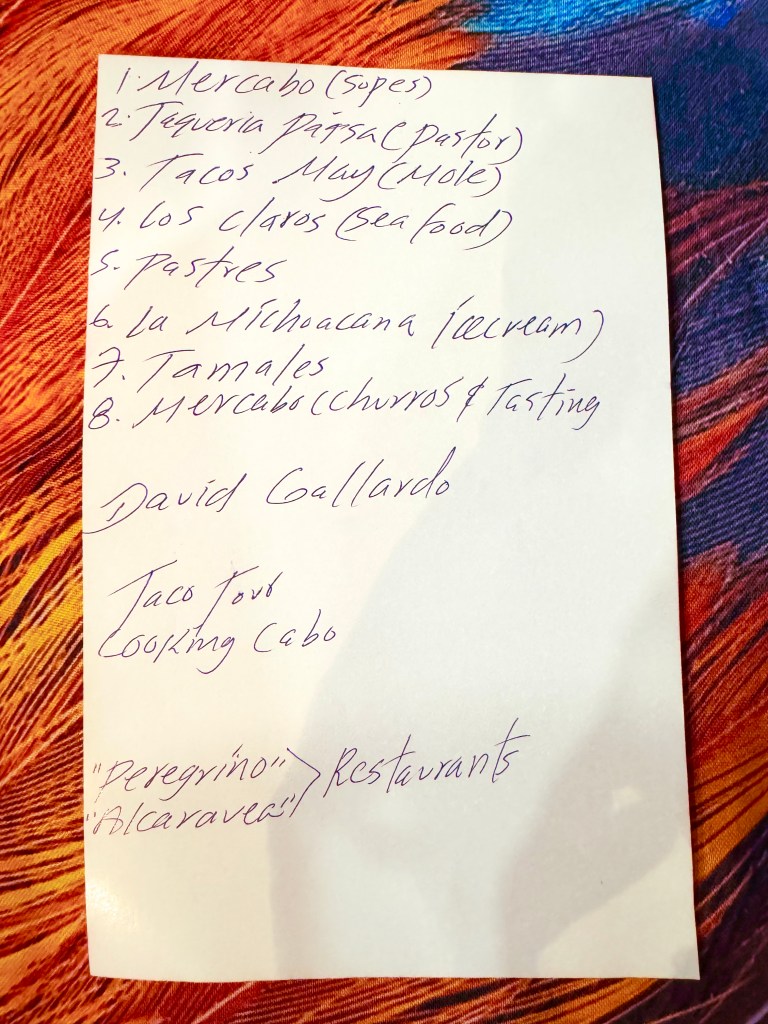 1. Mercabo (Sopes)
2. Taqueria Parsa (pastor)
3. Tacos May (Mole)
4. Los claros (sea food)
5. pastres
6. La Michoacana icecream)
7. Tamales
8. Mercabo (churros & Tasting
David Gallardo
Taco Tour
Cooking Cabo
"Peregrino" > Restaurants
"Alcaravea"